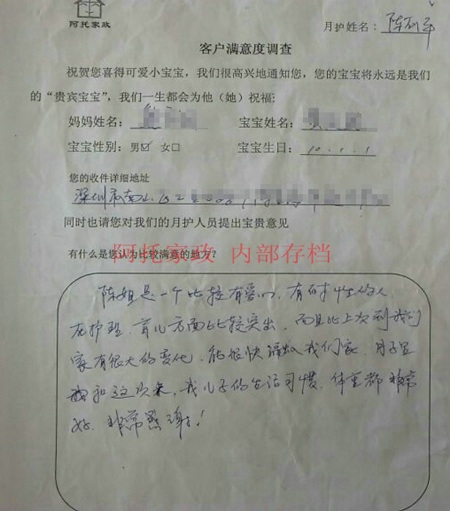 阿托家政
月护姓名：陈
客户满意度调查
祝贺您喜得可爱小宝宝，我们很高兴地通知您，您的宝宝将永远是我们
的“贵宾宝宝”，我们一生都会为他（她）祝福：
妈妈姓名： 宝宝姓名：
宝宝性别：男☑ 女□ 宝宝生日：10.1.1
您的收件详细地址
深圳市南山
同时也请您对我们的月护人员提出宝贵意见
阿托家政 内部存档
有什么是您认为比较满意的地方？
陈姐是一个比较有爱心，有耐性的人
在护理，育儿方面比较突出，而且比上次到我们
家有很大的变化，能很快 我们家，月子里
我和 ，我儿子的生活习惯，体重都非常
好，非常感谢！